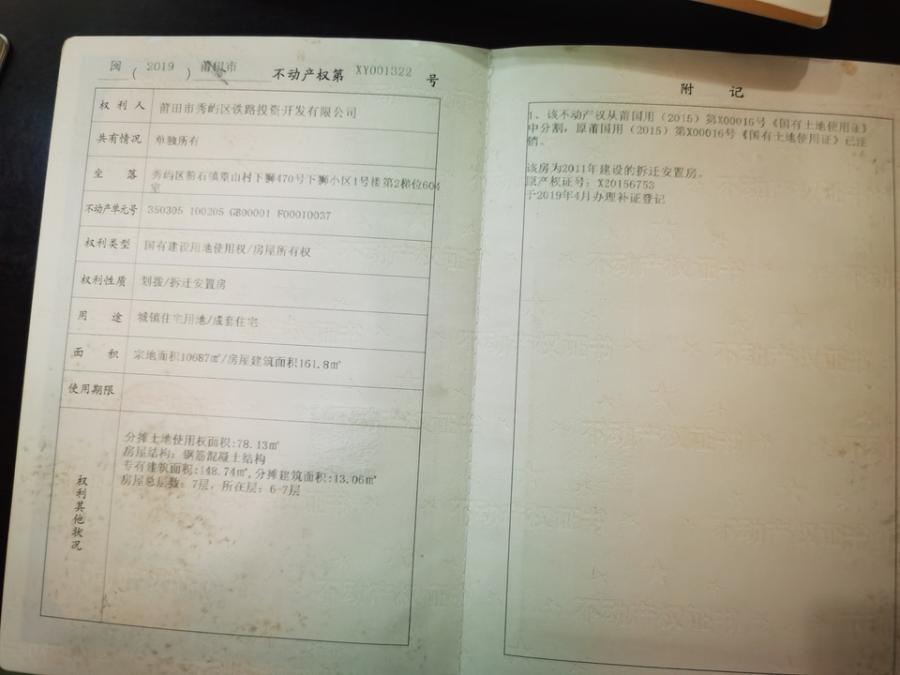 闽(2019)莆田市不动产权第XY001322号
权利人 莆田市秀屿区铁路投资开发有限公司
共有情况 单独所有
坐落 秀屿区笏石镇章山村下狮470号下狮小区1号楼第2梯位604
室
不动产单元号 350305 100205 GB00001 F00010037
权利类型 国有建设用地使用权/房屋所有权
权利性质 划拨/拆迁安置房
用途 城镇住宅用地/成套住宅
面积 宗地面积10687㎡/房屋建筑面积161.8㎡
使用期限
权利其他状况
分摊土地使用权面积:78.13㎡
房屋结构:钢筋混凝土结构
专有建筑面积:148.74㎡,分摊建筑面积:13.06㎡
房屋总层数:7层,所在层:6-7层
附记
1、该不动产权从莆国用(2015)第X00016号《国有土地使用证》
中分割,原莆国用(2015)第X00016号《国有土地使用证》已注
销。
该房为2011年建设的拆迁安置房。
原产权证号:X20156753
于2019年4月办理补证登记